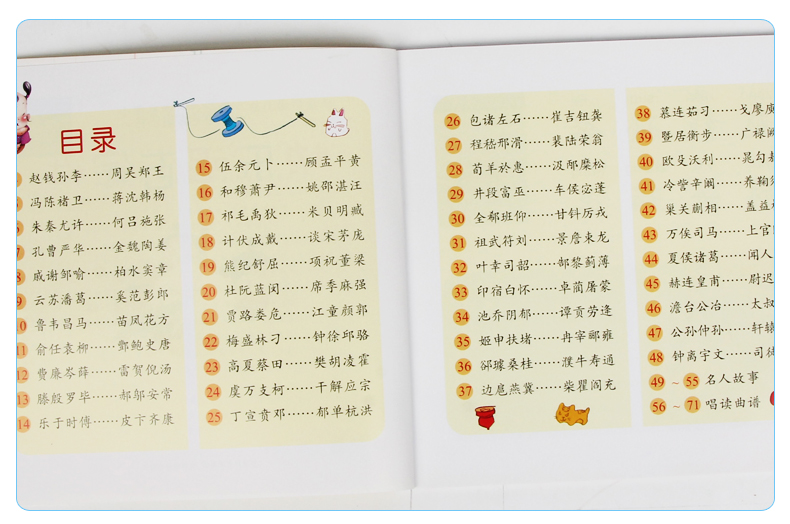 目录
赵钱孙李……周吴郑王
冯陈褚卫……蒋沈韩杨
朱秦尤许……何吕施张
孔曹严华……金魏陶姜
戚谢邹喻……柏水窦章
云苏潘葛……奚范彭郎
鲁韦昌马……苗凤花方
11 俞任袁柳……酆鲍史唐
12 费廉岑薛……雷贺倪汤
13 滕殷罗毕……郝邬安常
14 乐于时傅……皮卞齐康
15 伍余元卜……顾孟平黄
16 和穆萧尹……姚邵湛汪
17 祁毛禹狄……米贝明臧
18 计伏成戴……谈宋茅庞
19 熊纪舒屈……项祝董梁
20 杜阮蓝闵……席季麻强
21 贾路娄危……江童颜郭
22 梅盛林刁……钟徐邱骆
23 高夏蔡田……樊胡凌霍
24 虞万支柯……干解应宗
25 丁宣贲邓……郁单杭洪
26 包诸左石……崔吉钮龚
27 程嵇邢滑……裴陆荣翁
28 荀羊於惠……汲邴糜松
29 井段富巫……车侯宓蓬
30 全郗班仰……甘钭厉戎
31 祖武符刘……景詹束龙
32 叶幸司韶……郜黎蓟薄
33 印宿白怀……卓蔺屠蒙
34 池乔阴郁……谭贡劳逄
35 姬申扶堵……冉宰郦雍
36 郤璩桑桂……濮牛寿通
37 边扈燕冀……柴瞿阎充
38 慕连茹习……戈廖
39 暨居衡步……广禄
40 欧殳沃利……晁勾
41 冷訾辛阚……养鞠
42 巢关蒯相……盖益
43 万俟司马……上官
44 夏侯诸葛……闻人
45 赫连皇甫……尉迟
46 澹台公冶……太叔
47 公孙仲孙……轩辕
48 钟离宇文……司徒
49 ~ 55 名人故事
56 ~ 71 唱读曲谱